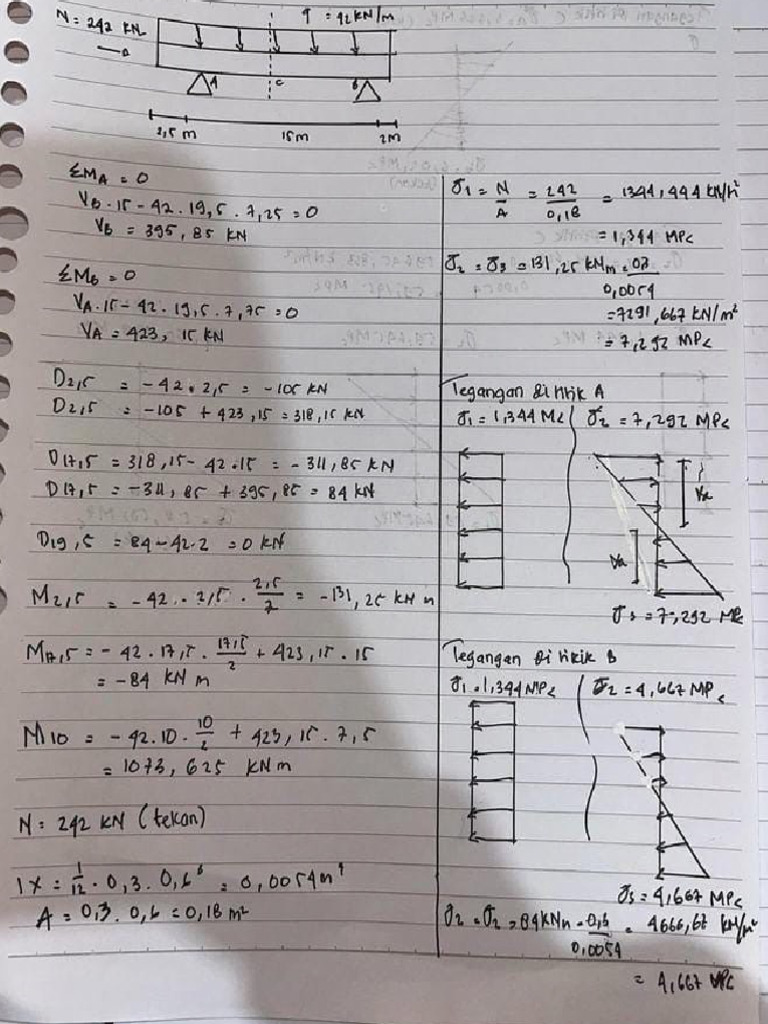 N = 242 kN
q = 42 kN/m
A
C
B
2,5 m
15 m
2 m
ΣMA = 0
VB . 15 - 42 . 19,5 . 7,25 = 0
VB = 395,85 kN
ΣMB = 0
VA . 15 - 42 . 19,5 . 7,75 = 0
VA = 423,15 kN
D2,5 = -42 . 2,5 = -105 kN
D2,5 = -105 + 423,15 = 318,15 kN
D17,5 = 318,15 - 42 . 15 = -311,85 kN
D17,5 = -311,85 + 395,85 = 84 kN
D19,5 = 84 - 42 . 2 = 0 kN
M2,5 = -42 . 2,5 . 2,5/2 = -131,25 kN m
M17,5 = -42 . 17,5 . 17,5/2 + 423,15 . 15
= -84 kN m
M10 = -42 . 10 . 10/2 + 423,15 . 7,5
= 1073,625 kN m
N = 242 kN (tekan)
IX = 1/12 . 0,3 . 0,6³ = 0,0054 m⁴
A = 0,3 . 0,6 = 0,18 m²
σ1 = N/A = 242/0,18 = 1344,444 kN/m²
= 1,344 MPa
σ2 = σ3 = 131,25 kNm . 0,3/0,0054
= 7291,667 kN/m²
= 7,292 MPa
Tegangan di titik A
σ1 = 1,344 MPa
σ2 = 7,292 MPa
σ3 = 7,292 MPa
Tegangan di titik B
σ1 = 1,344 MPa
σ2 = 4,667 MPa
σ3 = 4,667 MPa
σ2 = σ2 = 84 kNm . 0,3/0,0054 = 4666,67 kN/m²
= 4,667 MPa